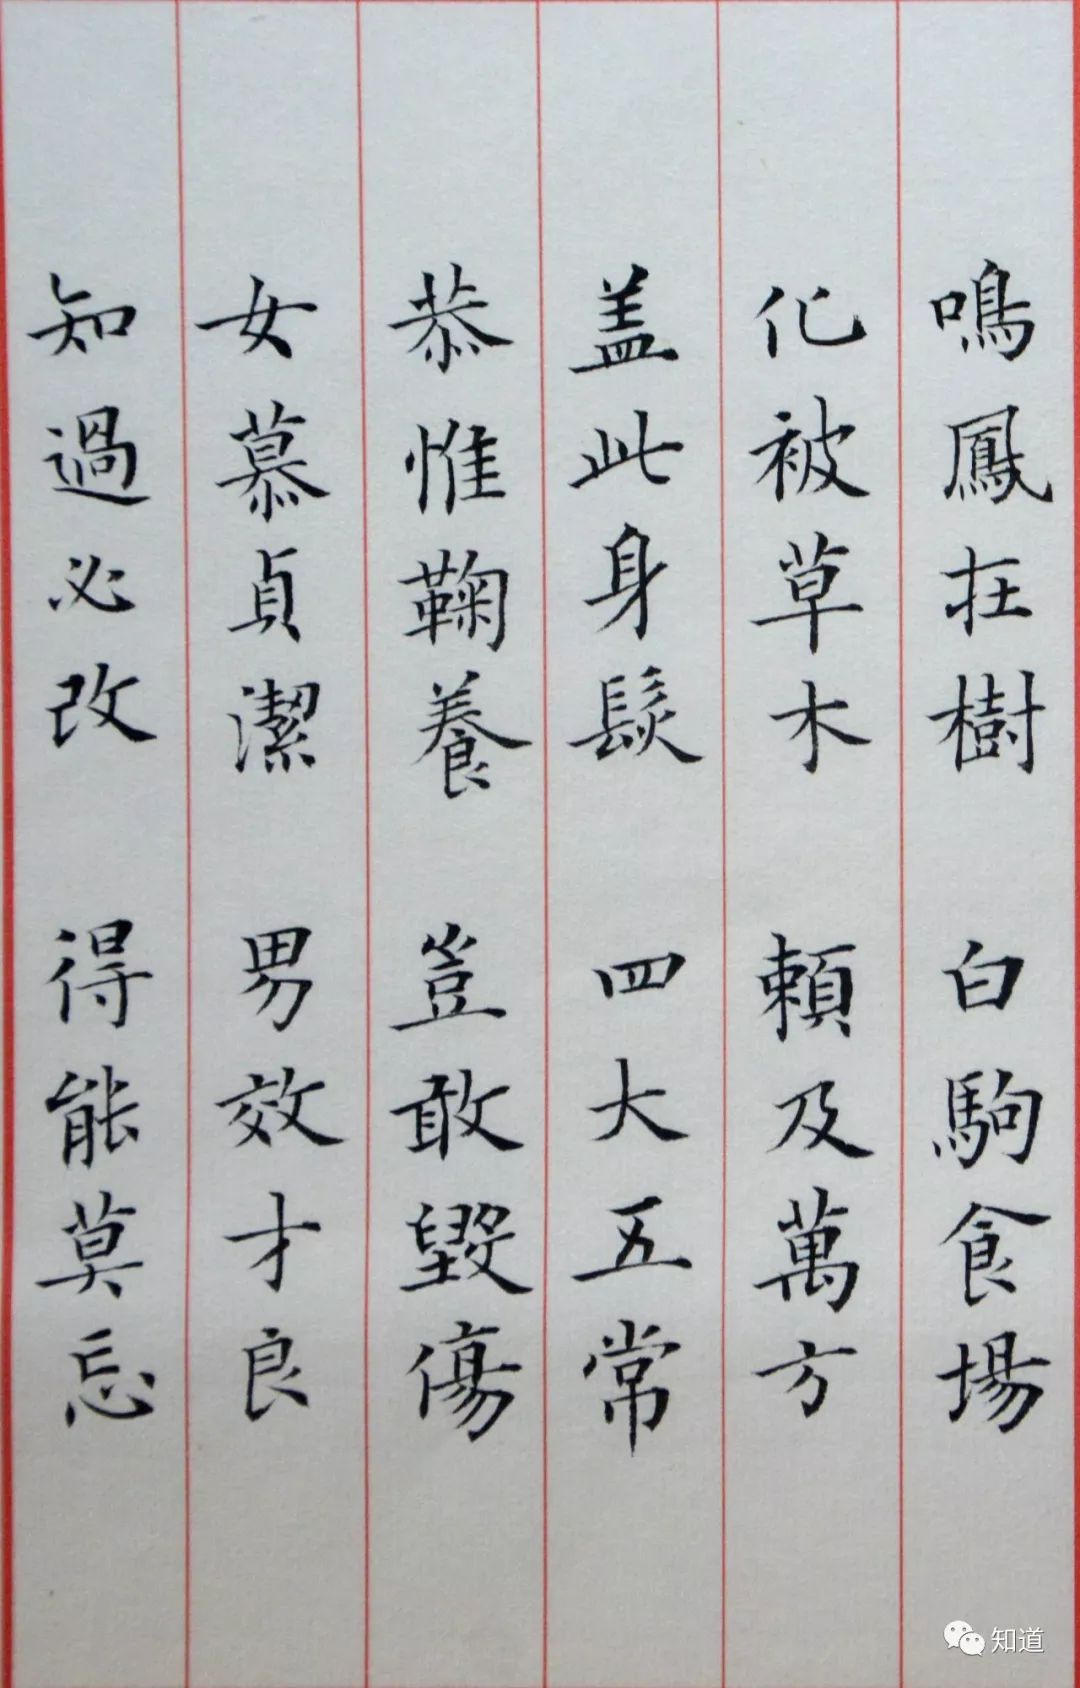 鳴鳳在樹 白駒食場
化被草木 賴及萬方
盖此身髮 四大五常
恭惟鞠養 豈敢毀傷
女慕貞潔 男效才良
知過必改 得能莫忘
知道